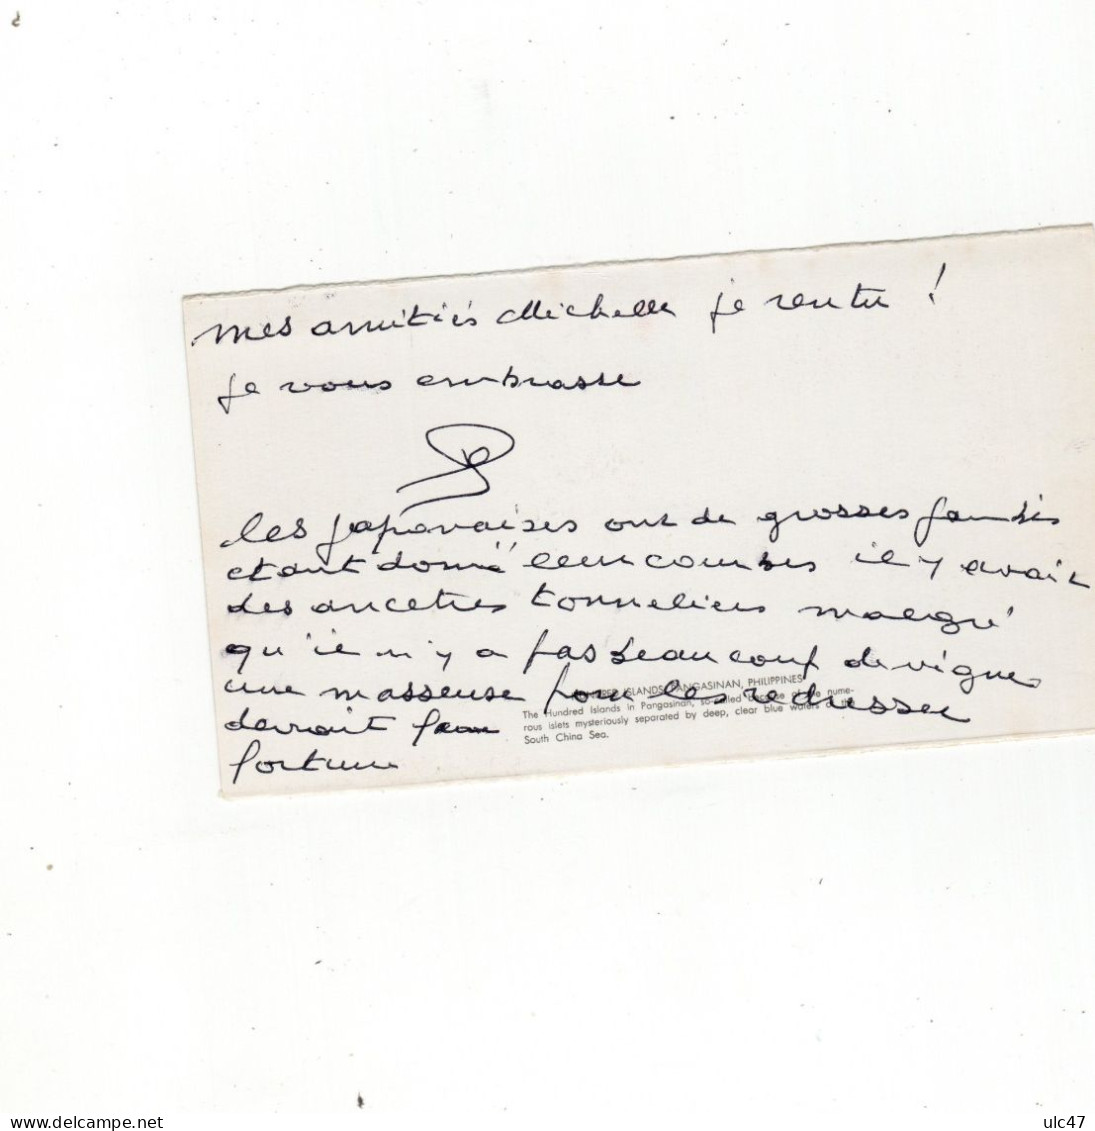 mes amitiés Michelle je rentre !
je vous embrasse
les japonaises ont de grosses jambes
etant donné leur courbes il y avait
des ancetres tonneliers malgré
qu'il n'y a pas beaucoup de vignes
une masseuse pour les redresser
devrait faire
fortune
ISLANDS, PANGASINAN, PHILIPPINES
The Hundred Islands in Pangasinan, so-called because of the nume-
rous islets mysteriously separated by deep, clear blue waters of the
South China Sea.
delcampe.net
ulc47